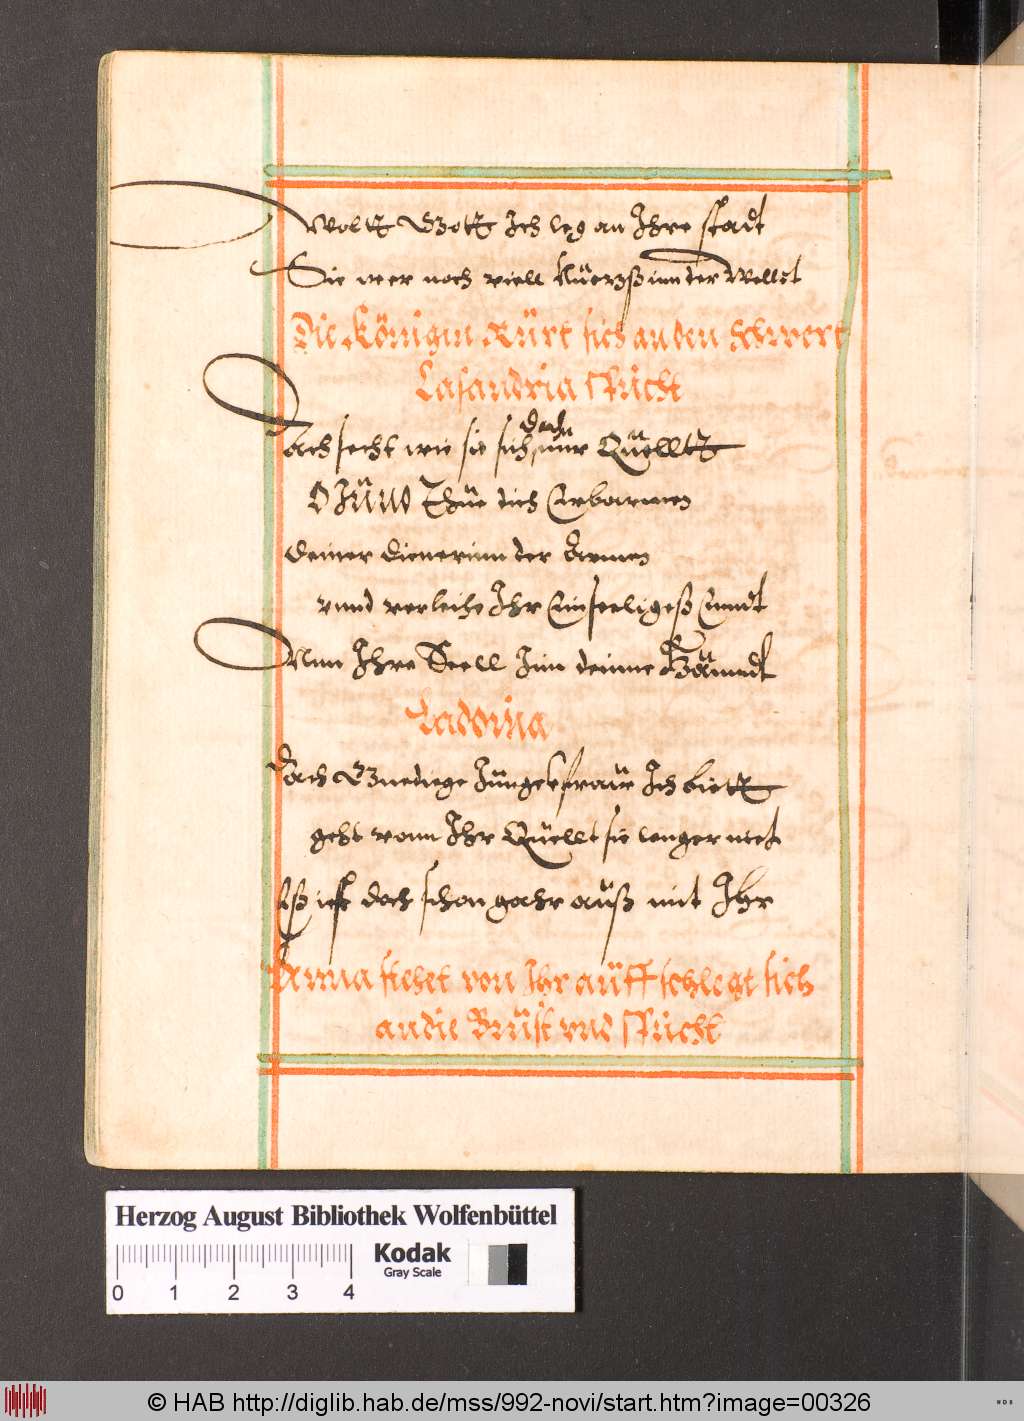 Woltt Gott Ich leg an Ihre stadt
Sie wer noch viell Nüerzß inn der Welldt
Die Königin Rürt sich an den schwert
Casandria spricht
Ach secht wie sie sich doch nur Quelltt
O Jüno Thüe dich Erbarmen
Deiner dienerinn der Armen
vnnd verleihe Ihr Ein seeligeß Enndt
Nim Ihre Seell Inn deinne Hännndt
Ladonia
Ach Gnedige Jüngckfraüw Ich bitt
geht vonn Ihr Quellt sie lenger niet
Eß ist doch schon gahr auß mit Ihr
Anna siehet von Ihr aüff schlegt sich
an die Brüst vnd spricht
Herzog August Bibliothek Wolfenbüttel
Kodak
Gray Scale
0 1 2 3 4
© HAB http://diglib.hab.de/mss/992-novi/start.htm?image=00326